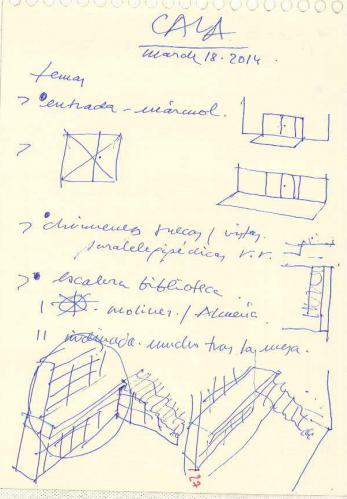 CALA
march 18 · 2014.
temas
> entrada - mármol.
>
> chimeneas huecas / vistas.
paralelepipédicas V.V.
> escalera biblioteca
| molinos / Almería
|| inclinada. tras la mesa.
127